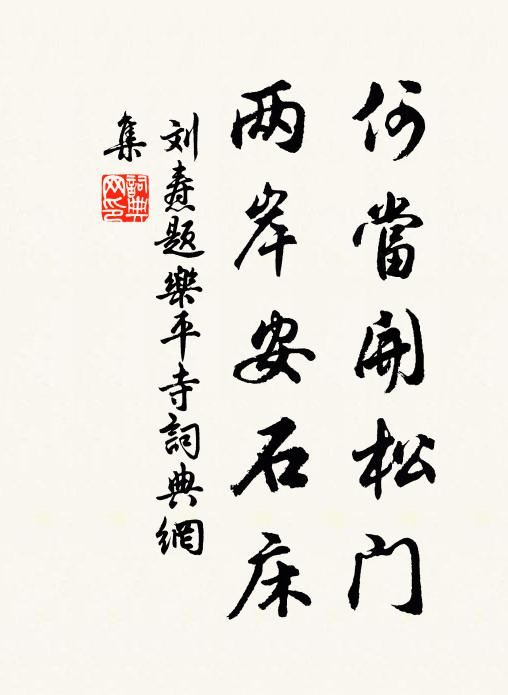 何當開松門
两岸安石床
刘焘題樂平寺詞典網
集
詞典
网印